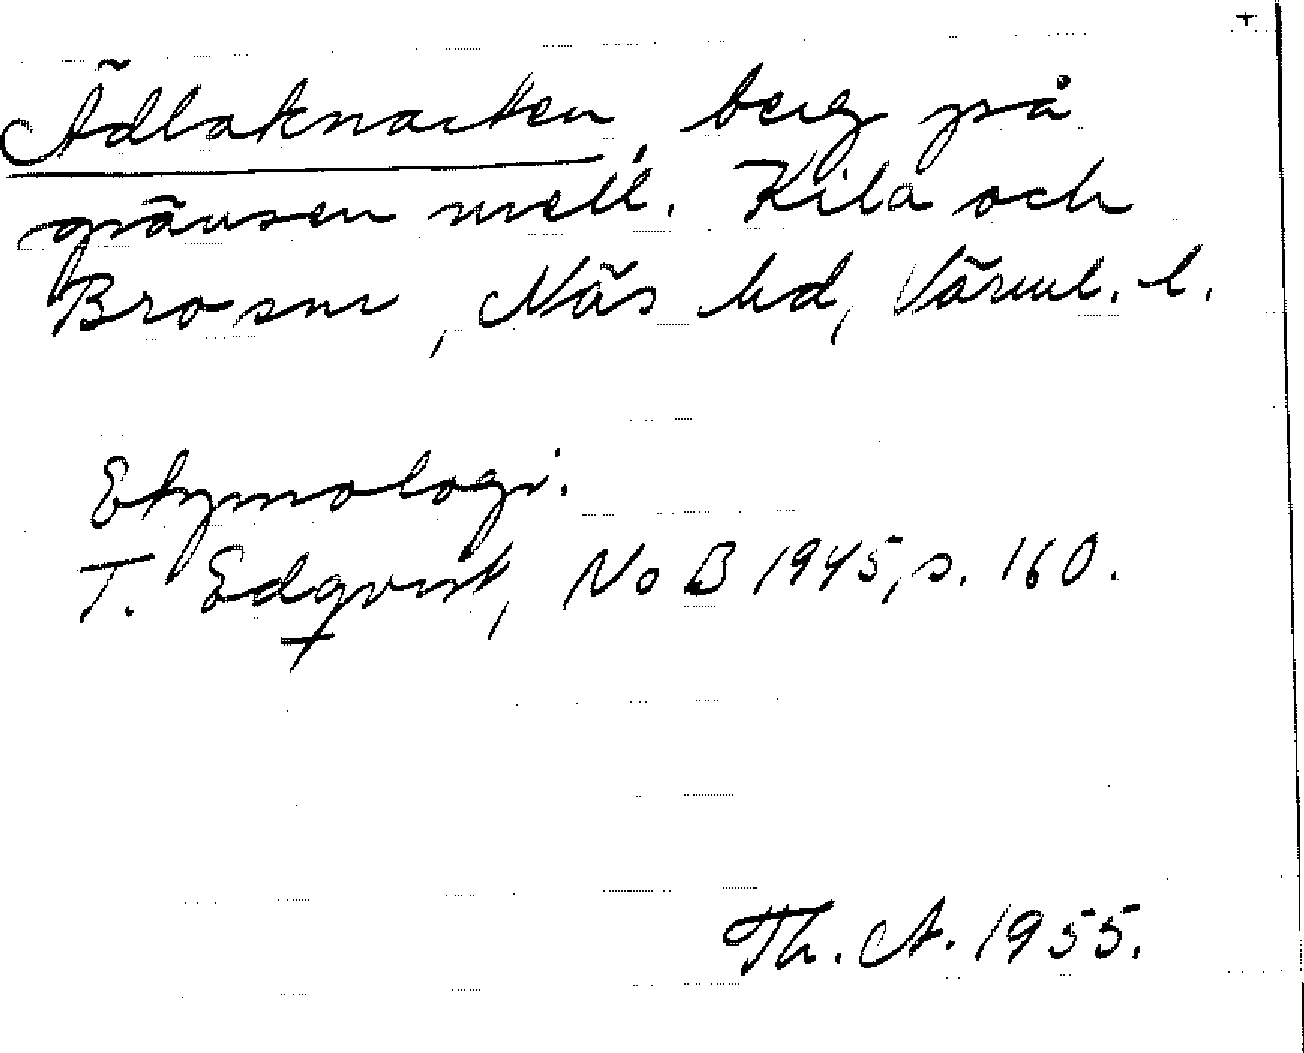 +
Ädlaknatten, berg på
gränsen mell. Kila och
Bro snr, Näs hd, Värml. l.
Etymologi.
T. Edqvist, NoB 1945, s. 160.
Th. A. 1955.